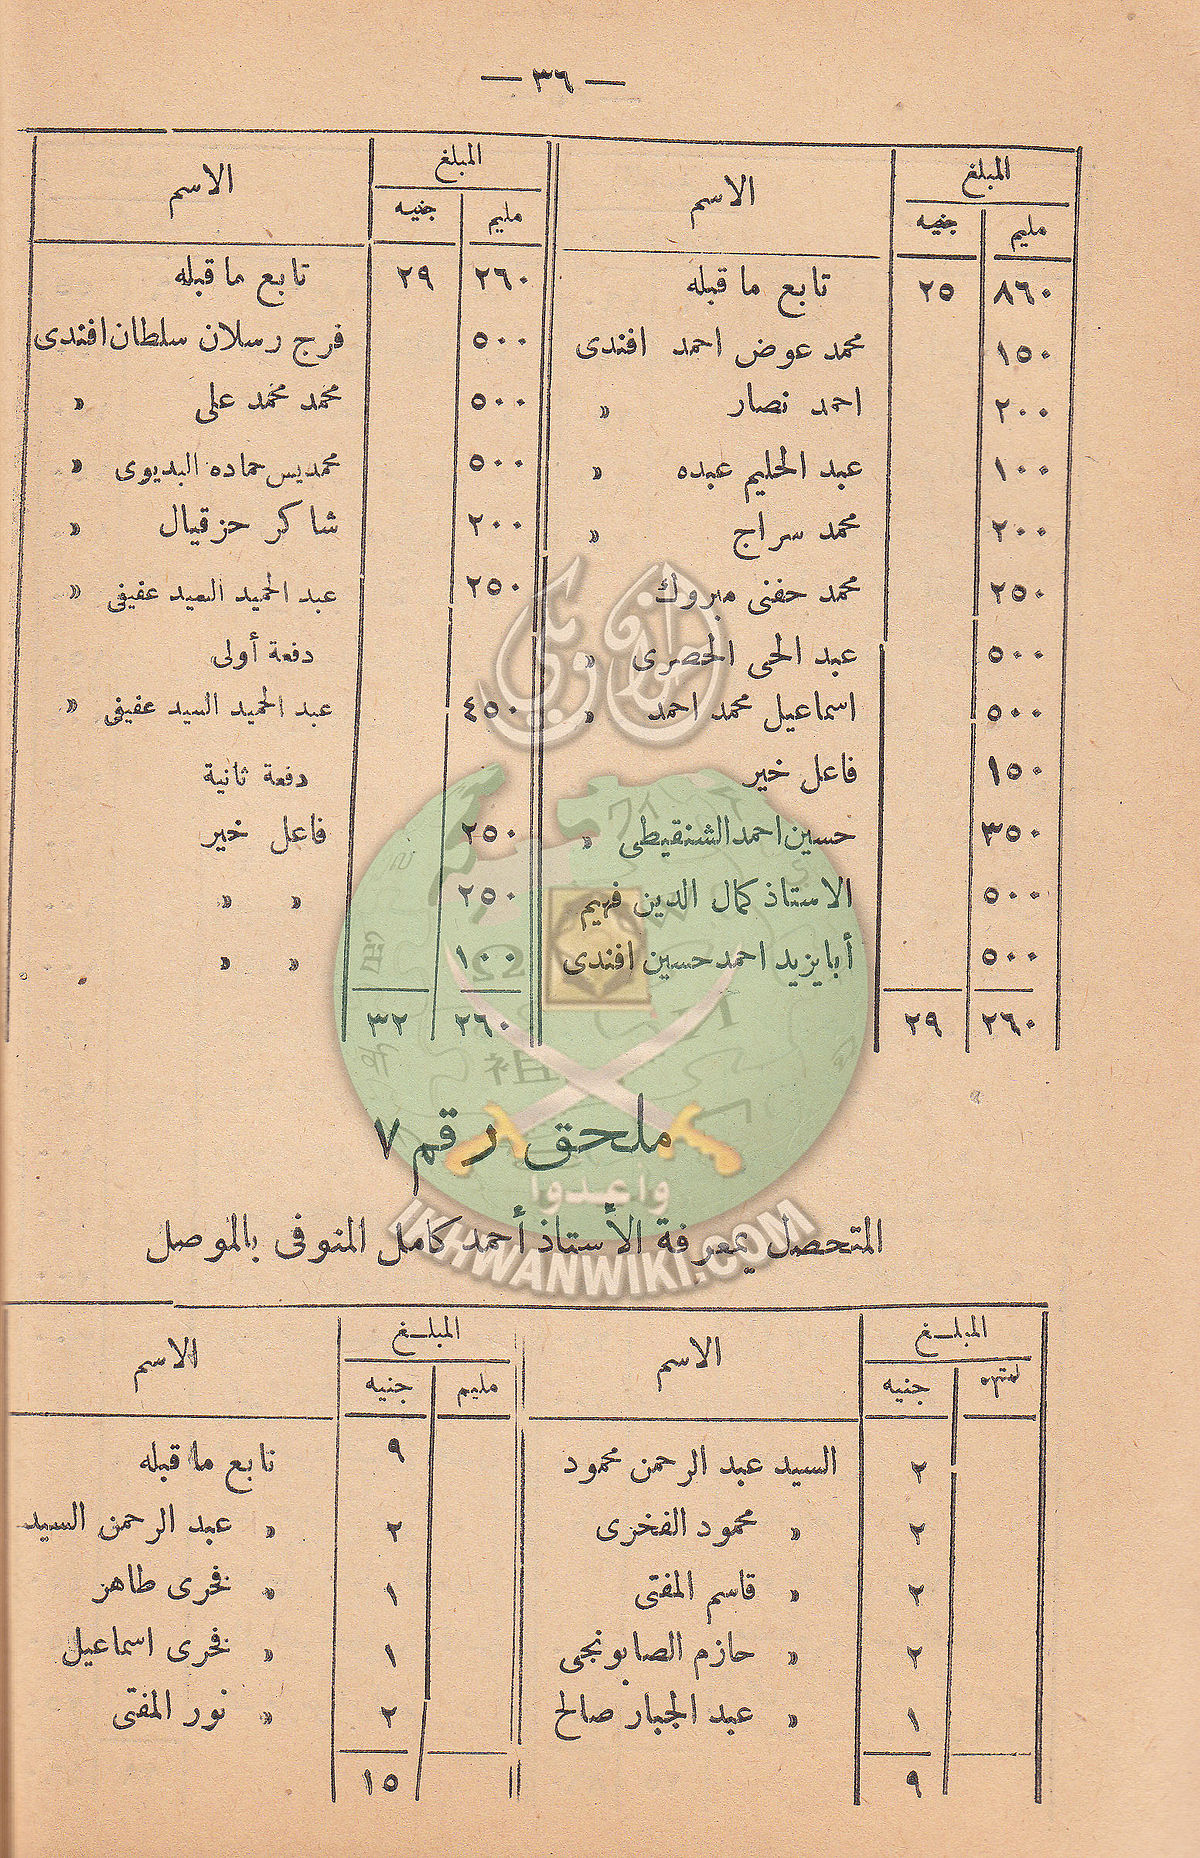 — ٣٦ —
المبلغ الاسم المبلغ الاسم
مليم جنيه مليم جنيه
٨٦٠ ٢٥ تابع ما قبله ٢٦٠ ٢٩ تابع ما قبله
١٥٠ محمد عوض احمد افندى ٥٠٠ فرج رسلان سلطان افندى
٢٠٠ احمد نصار » ٥٠٠ محمد محمد على »
١٠٠ عبد الحليم عبده » ٥٠٠ محمد يس حماده البديوى »
٢٠٠ محمد سراج » ٢٠٠ شاكر حزقيال »
٢٥٠ محمد حفنى مبروك ٢٥٠ عبد الحميد السيد عفيفى »
٥٠٠ عبد الحى الحصرى » دفعة أولى
٥٠٠ اسماعيل محمد احمد » ٤٥٠ عبد الحميد السيد عفيفى »
١٥٠ فاعل خير دفعة ثانية
٣٥٠ حسين احمد الشنقيطى » ٢٥٠ فاعل خير
٥٠٠ الاستاذ كمال الدين فهيم ٢٥٠ » »
٥٠٠ أبايزيد احمد حسين افندى ١٠٠ » »
٢٦٠ ٢٩ ٢٦٠ ٣٢
ملحق رقم ٧
المتحصل بمعرفة الأستاذ أحمد كامل المنوفى بالموصل
المبلغ الاسم المبلغ الاسم
جنيه مليم جنيه
٢ السيد عبد الرحمن محمود ٩ تابع ما قبله
٢ » محمود الفخرى ٢ » عبد الرحمن السيد
٢ » قاسم المفتى ١ » فخرى طاهر
٢ » حازم الصابونجى ١ » فخرى اسماعيل
١ » عبد الجبار صالح ٢ » نور المفتى
٩ ١٥
إخوان ويكي
وأعدوا
IKHWANWIKI.COM